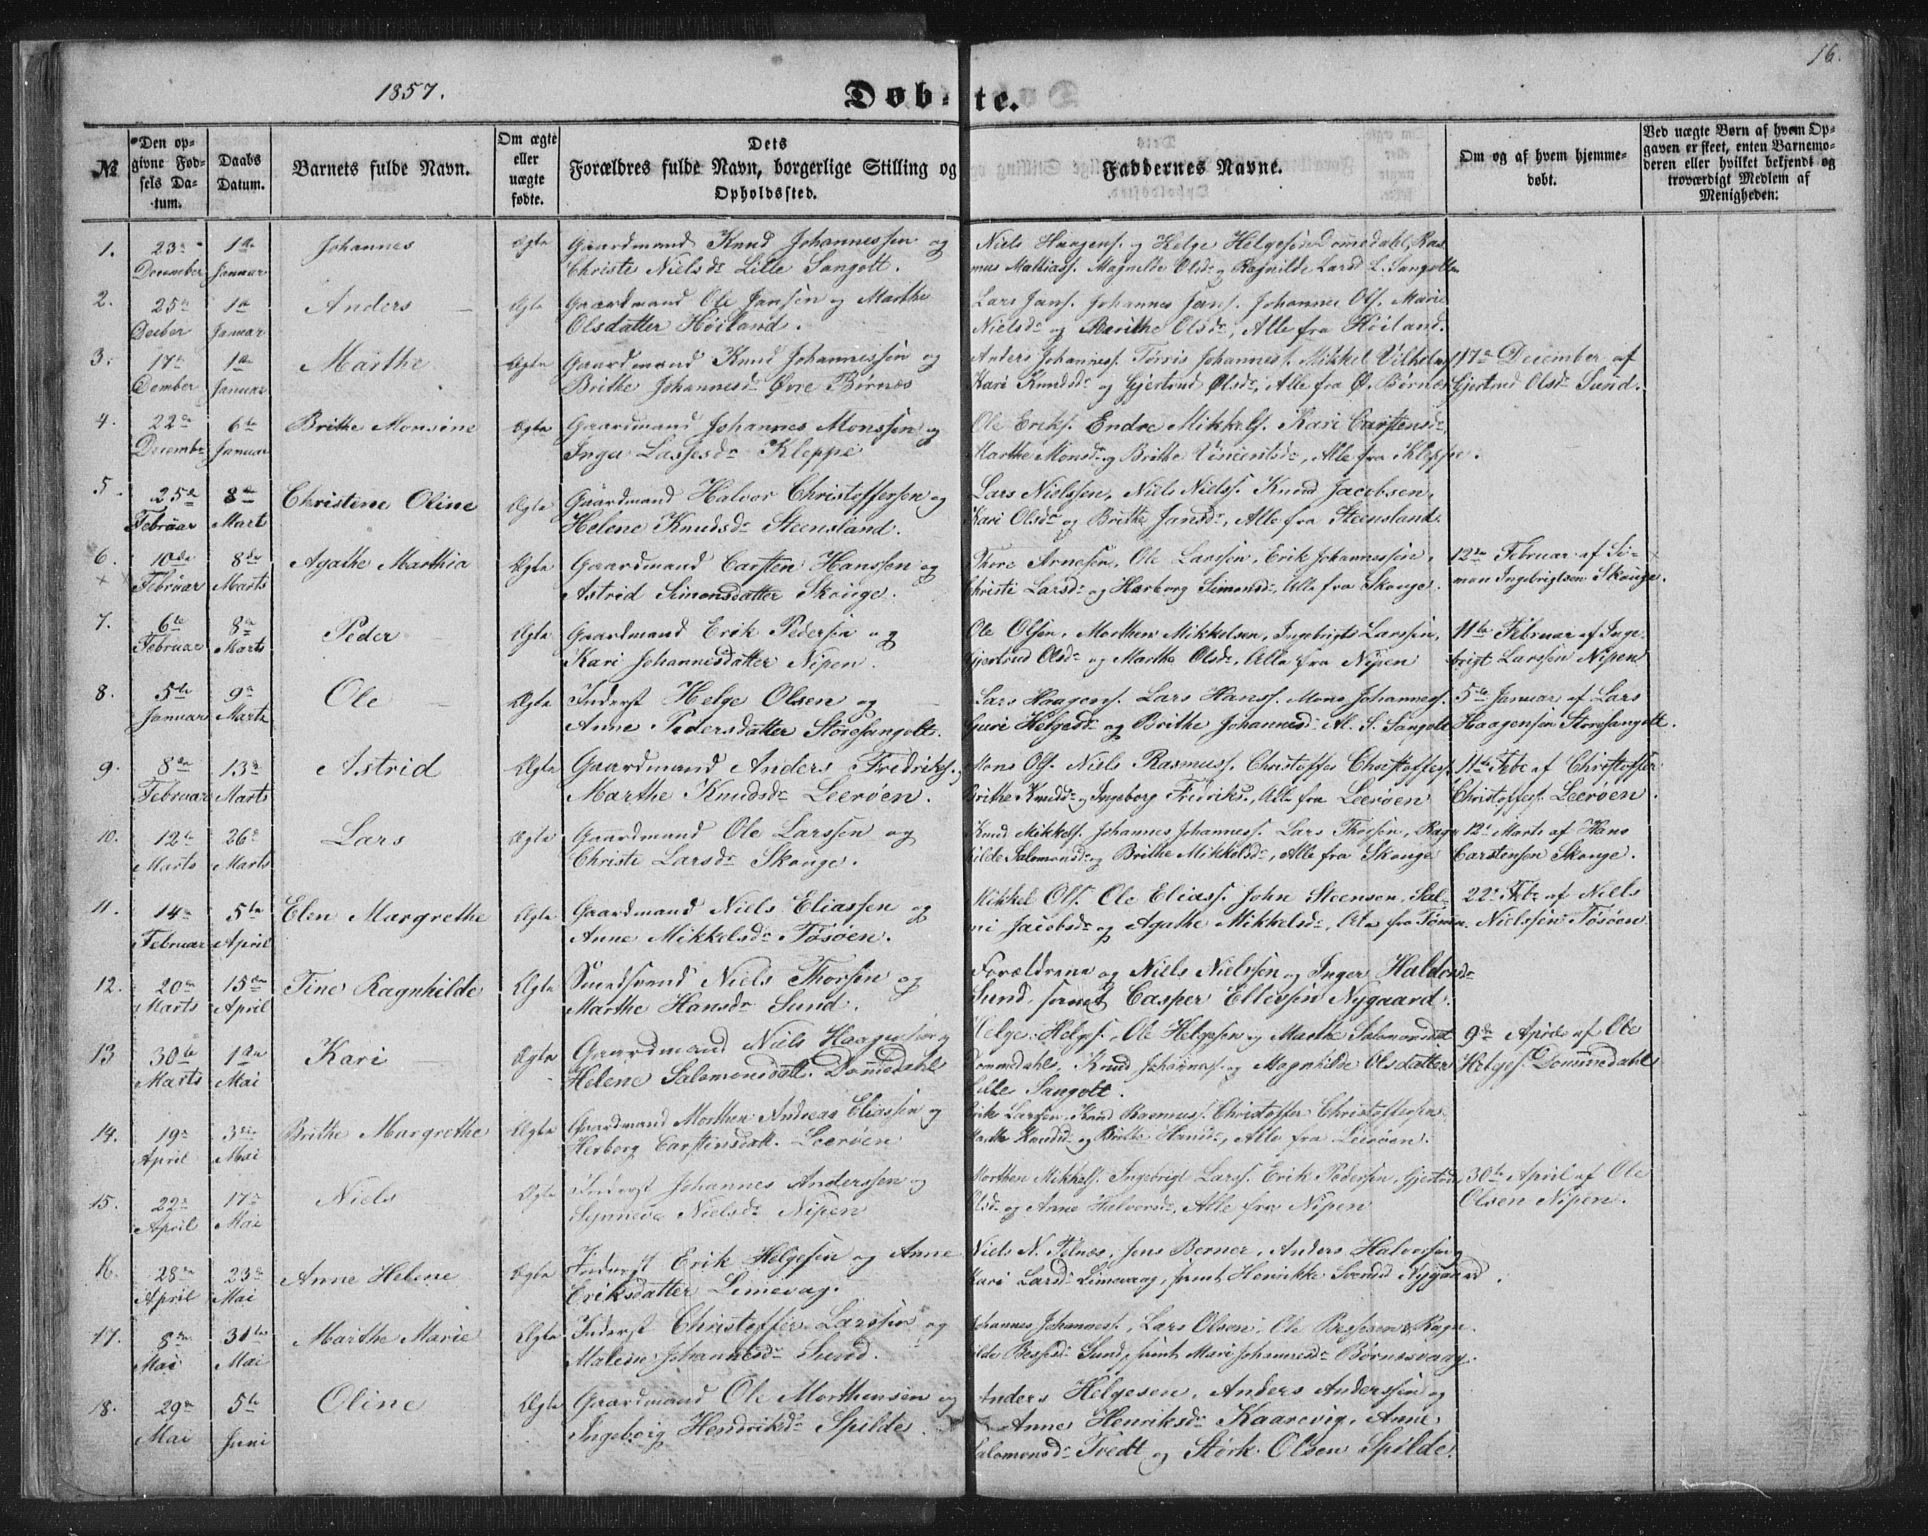 16.
1857.
Døbte.
№
Den opgivne Fødsels Datum.
Daabs Datum.
Barnets fulde Navn.
Om ægte eller uægte fødte.
Dets Forældres fulde Navn, borgerlige Stilling og Opholdssted.
Faddernes Navne.
Om og af hvem hjemmedøbt.
Ved uægte Børn af hvem Opgaven er skeet, enten Barnemoderen eller hvilket bekjendt og troværdigt Medlem af Menigheden:
1. 23de December 1ste Januar Johannes Ægte Gaardmand Knud Johannessen og
Christi Nielsdr Lille Sangolt.
Niels Haagens. og Helge Helgesen Dommedahl, Ras
mus Mathiass. Magnilde Olsdr og Ragnilde Larsd L. Sangolten
2. 25de Deeber 1ste Januar Anders Ægte Gaardmand Ole Jansen og Marthe
Olsdatter Høiland.
Lars Jans. Johannes Jans. Johannes Ols. Mari
Nielsdr og Barithe Olsdr, Alle fra Høiland.
3. 17de Dember 1ste Januar Marthe Ægte Gaardmand Knud Johannessen og
Brithe Johannesdr Øvre Børnæs
Anders Johanness. Tørris Johanness. Mikkel Vilhelms
Kari Knudsdr og Gjertrud Olsdr, Alle fra Ø. Børnæs
17de December af
Gjertrud Olsdr Sund.
4. 22de Decembr 6te Januar Brithe Monsine Ægte Gaardmand Johannes Monssen og
Inga Lassesdr Kleppe
Ole Eriks. Endre Mikkels. Kari Carstensdr,
Marthe Monsdr og Brithe Vincentsdr, Alle fra Kleppe.
5. 25de Februar 8de Mart Christine Oline Ægte Gaardmand Halvor Christoffersen og
Helene Knudsdr Steensland.
Lars Nielssen, Niels Niels. Knud Jacobsen,
Kari Olsdr og Brithe Jansdr, Alle fra Steensland.
6. 10de Februar 8de Marts Agathe Marthia Ægte Gaardmand Carsten Hanssen og
Astrid Simonsdatter Skouge.
Thore Arnesen, Ole Larssen, Erik Johannessen,
Christi Larsdr og Harborg Simonsdr, Alle fra Skouge.
12te Februar af Si-
mon Ingebrigtsen Skouge.
7. 6te Februar 8de Marts Peder Ægte Gaardmand Erik Pedersen og
Kari Johannesdatter Nipen.
Ole Olsen, Morthen Mikkelsen, Ingebrigt Larssen,
Gjertrud Olsdr og Marthe Olsdr, Alle fra Nipen
11te Februar af Inge-
brigt Larssen Nipen
8. 5te Januar 9de Marts Ole Ægte Inderst Helge Olsen og
Anne Pedersdatter Storesangolt.
Lars Haagens. Lars Hanss. Mons Johanness.
Guri Helgesdr og Brithe Johannesdr Al. S. Sangolt
5te Januar af Lars
Haagensen Storesangolt.
9. 8de Februar 13de Marts Astrid Ægte Gaardmand Anders Fredriks.
Marthe Knudsdr Leerøen.
Mons Ols. Niels Rasmuss. Christoffer Christoffers.
Brithe Knudsdr og Ingeborg Fredriks., Alle fra Leerøen
11te Febr af Christoffer
Christoffers. Leerøen.
10. 12te Marts 26de Marts Lars Ægte Gaardmand Ole Larssen og
Christi Larsdr Skouge.
Knud Mikkels. Johannes Johanness. Lars Thorsen, Ragn
hilde Salomonsdr og Brithe Mikkelsdr, Alle fra Skouge
12te Marts af Hans
Carstensen Skouge.
11. 14de Februar 5te April Elen Margrethe Ægte Gaardmand Niels Eliassen og
Anne Mikkelsdr Tøsøen.
Mikkel Ols. Ole Eliass. John Steensen, Sal-
mi Jacobsdr og Agathe Mikkelsdr, Alle fra Tøsøen.
22de Febr af Niels
Nielssen Tøsøen
12. 20de Marts 15de April Tine Ragnhilde Ægte Strandsværd Niels Thorsen og
Marthe Hansdr Sund.
Forældrene og Niels Nielssen og Inger Haldorsdr
Sund, samt Casper Ellevsen Nygaard.
13 30te Marts 1ste Mai Kari Ægte Gaardmand Niels Haagensen og
Helene Salomonsdatt. Domedahl
Helge Helges., Ole Helgesen og Marthe Salomonsdt
Dommedahl, Knud Johanness. og Magnhilde Olsdatter
Lille Sangolt.
9de April af Ole
Helges. Dommedahl
14. 19de April 3die Mai Brithe Margrethe Ægte Gaardmand Morthen Andreas Eliassen og
Herborg Carstensdatt. Leerøen
Erik Larsen, Knud Rasmuss. Christoffer Christoffersen.
Marthe Knudsdr og Brithe Hansdr, Alle fra Leerøen.
15. 22de April 17de Mai Niels Ægte Inderst Johannes Anderssen og
Synneve Nielsdr Nipen
Morthen Mikkels. Ingebrigt Larss. Erik Pedersen, Gjertrud
Olsdr og Anne Halvorsdr, Alle fra Nipen
30te April af Ole
Olsen Nipen.
16. 28de April 23de Mai Anne Helene Ægte Inderst Erik Helgesen og Anne
Eriksdatter Limevag.
Niels N. Telnæs, Jens Berner, Anders Halvorsen og
Kari Larsdr Limevaag, samt Henrikke Svendsd Nygaard.
17. 8de Mai 31te Mai Marthe Marie Ægte Inderst Christoffer Larssen og
Malene Johannesdr Sund.
Johannes Johanness., Lars Olsen, Ole Bessesen & Ragn
hilde Bessesdr Sund, samt Mari Johannesdr Børnæsvaag.
18. 29de Mai 5te Juni Oline Ægte Gaardmand Ole Morthensen og
Ingeborg Hendriksdr Spilde.
Anders Helgesen, Anders Anderssen og
Anne Henriksdr Kaarevig, Anne
Salomonsdr Tvedt og Størk Olsen Spilde.